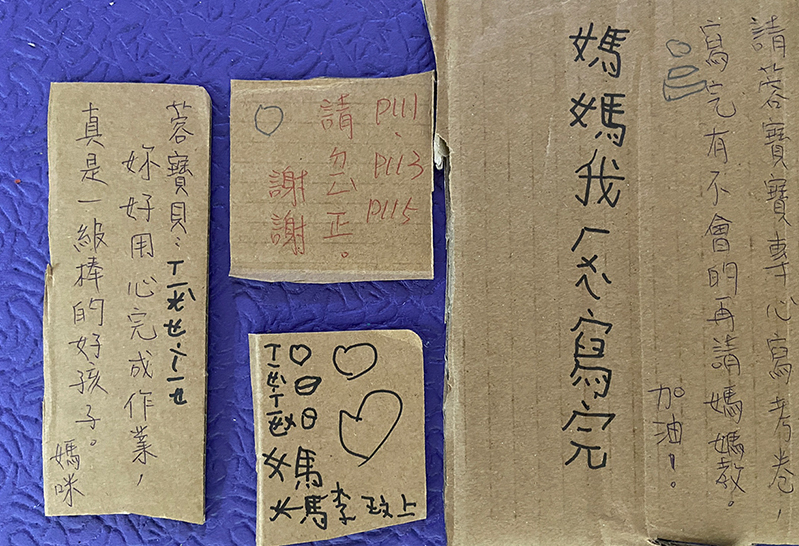 請蓉寶寶專心寫考卷，
寫完有不會的再請媽媽教。
加油！。
媽媽我寫完
P111、
P113
P115
請正。
謝謝
蓉寶貝：
妳好用心完成作業，
真是一級棒的好孩子。
媽咪
媽
媽李玟上